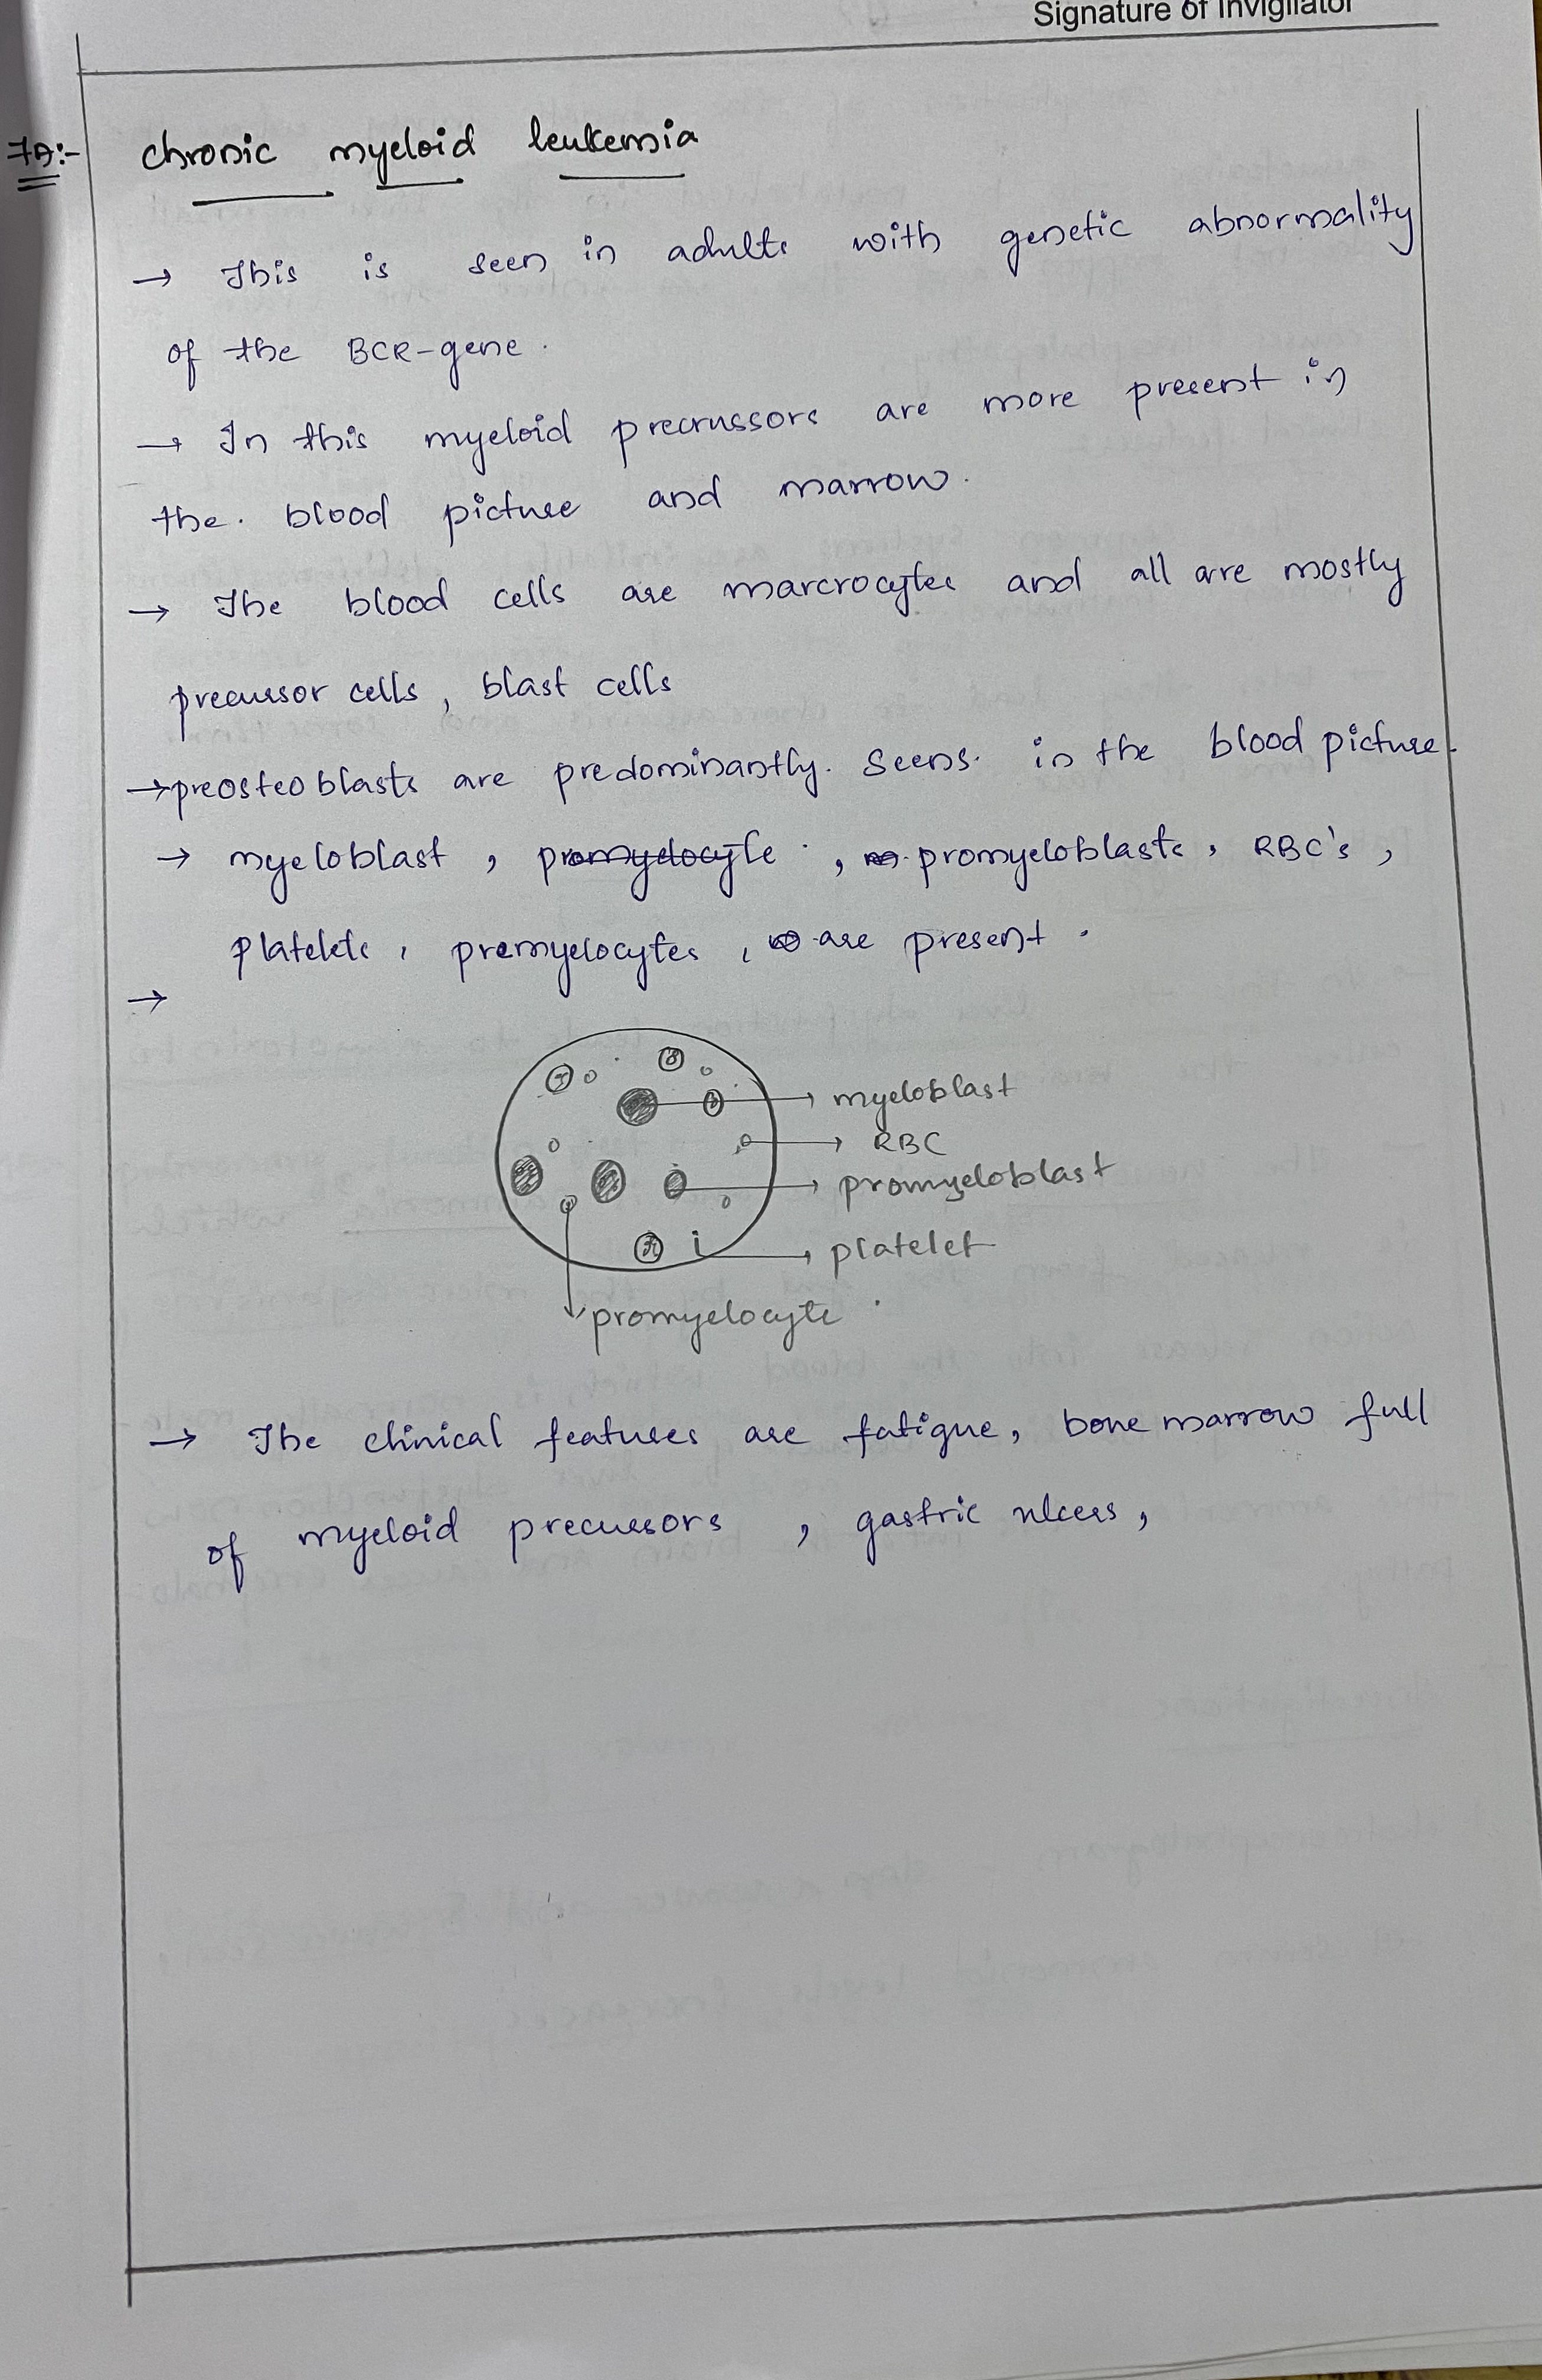 Signature of Invigilator
7A:- chronic myeloid leukemia
→ This is seen in adults with genetic abnormality
of the BCR-gene.
→ In this myeloid precrussors are more present in
the. blood picture and marrow.
→ The blood cells are marcrocytes and all are mostly
precussor cells, blast cells
→ preosteoblasts are predominantly. seens. in the blood picture.
→ myeloblast, promyelocyte, promyeloblasts, RBC's,
platelets, premyelocytes, are present.
→
myeloblast
RBC
promyeloblast
platelet
promyelocyte
→ The clinical features are fatigue, bone marrow full
of myeloid precussors, gastric ulcers,